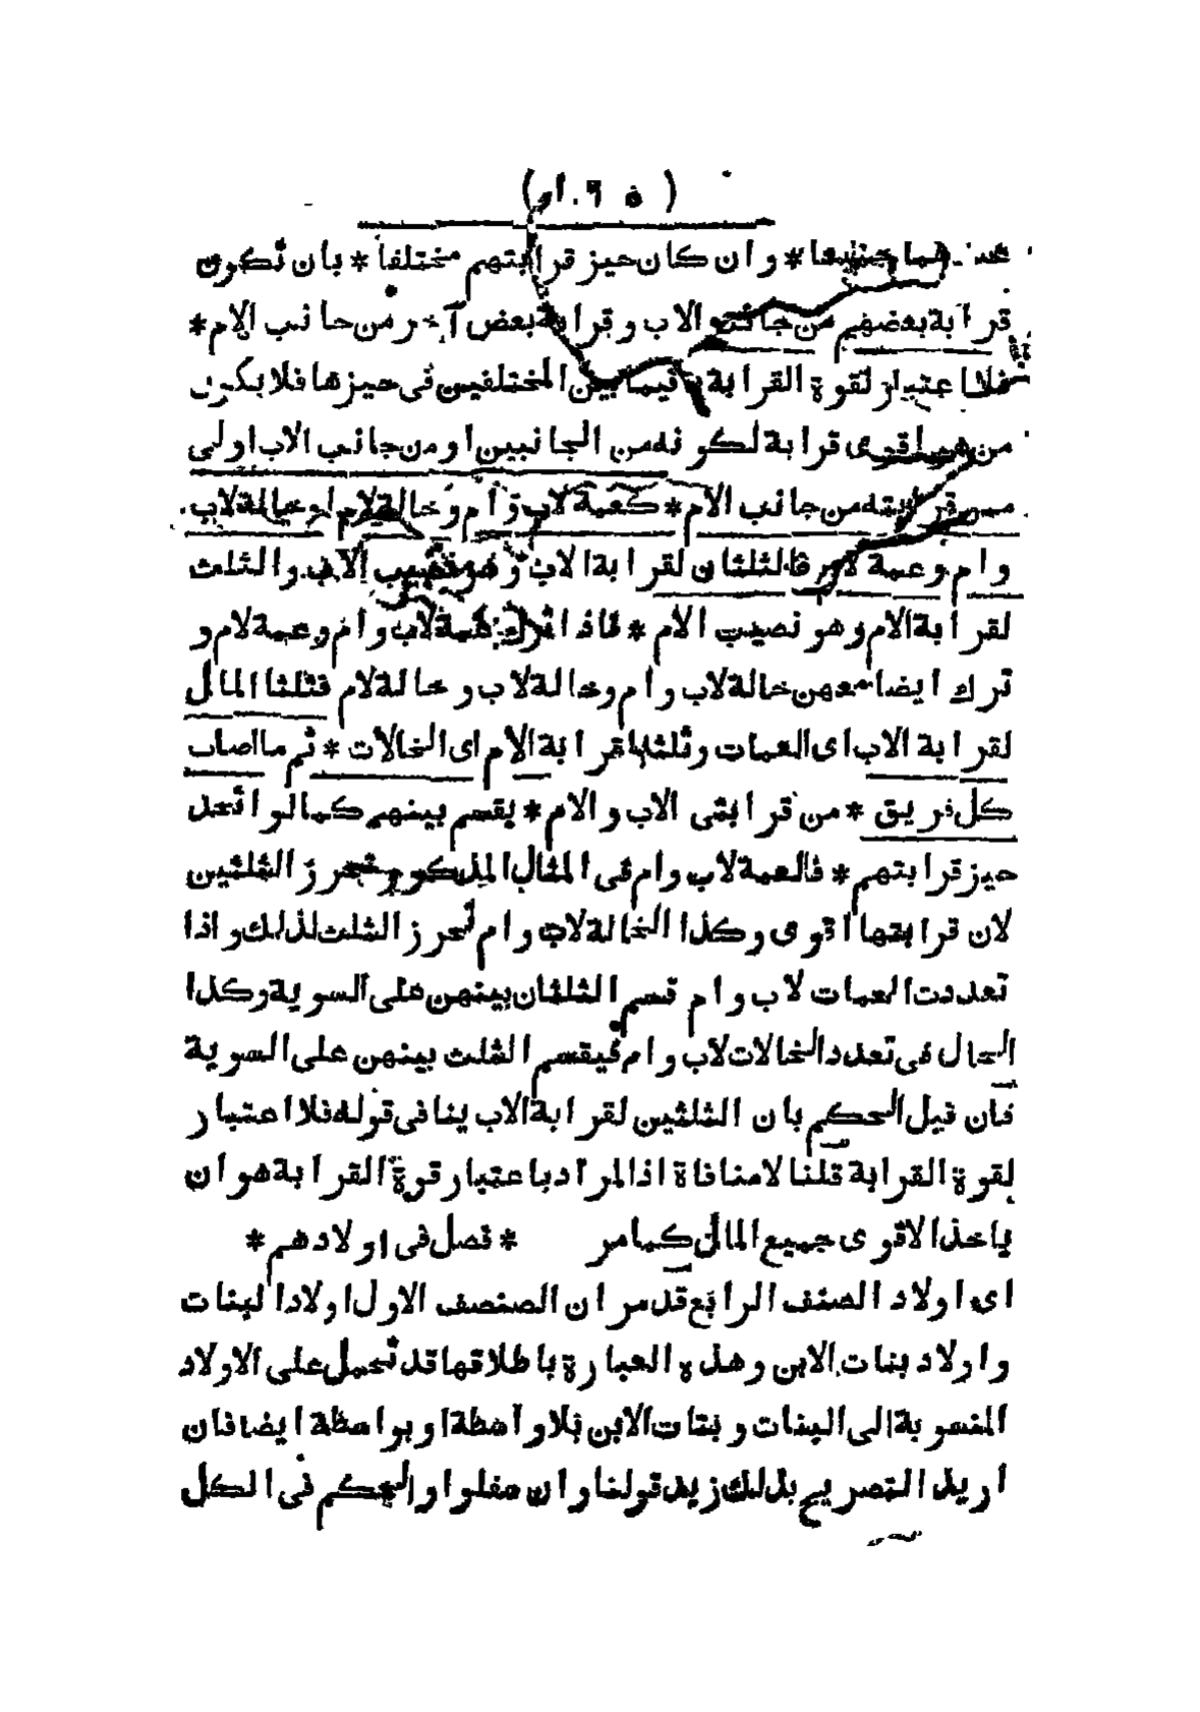 وان كان حيز قرابتهم مختلفا * بان تكون
قرابة بعضهم من جانب الاب وقرابة بعض آخر من جانب الام *
فلا اعتبار لقوة القرابة فيما بين المختلفين فى حيزها فلا يكون
من اقوى قرابة لكونه من الجانبين او من جانب الاب اولى
ممن قرابته من جانب الام * كعمة لاب وام وخالة لام او خالة لاب
وام وعمة لام فالثلثان لقرابة الاب وهو نصيب الاب والثلث
لقرابة الام وهو نصيب الام * فاذا ترك عمة لاب وام وعمة لام و
ترك ايضا معهن خالة لاب وام وخالة لاب وخالة لام فثلثا المال
لقرابة الاب اى العمات وثلثه لقرابة الام اى الخالات * ثم ما اصاب
كل فريق * من قرابتى الاب والام * يقسم بينهم كما لو اتحد
حيز قرابتهم * فالعمة لاب وام فى المثال المذكور تحرز الثلثين
لان قرابتها اقوى وكذا الخالة لاب وام تحرز الثلث لذلك واذا
تعددت العمات لاب وام قسم الثلثان بينهن على السوية وكذا
الحال فى تعدد الخالات لاب وام فيقسم الثلث بينهن على السوية
فان قيل الحكم بان الثلثين لقرابة الاب ينافى قوله فلا اعتبار
لقوة القرابة قلنا لا منافاة اذ المراد باعتبار قوة القرابة هو ان
ياخذ الاقوى جميع المال كما مر * فصل فى اولادهم *
اى اولاد الصنف الرابع قد مر ان الصنف الاول اولاد البنات
واولاد بنات الابن وهذه العبارة باطلاقها قد تحمل على الاولاد
المنسوبة الى البنات وبنات الابن بلا واسطة او بواسطة ايضا فان
اريد التصريح بذلك زيد قولنا وان سفلوا والحكم فى الكل